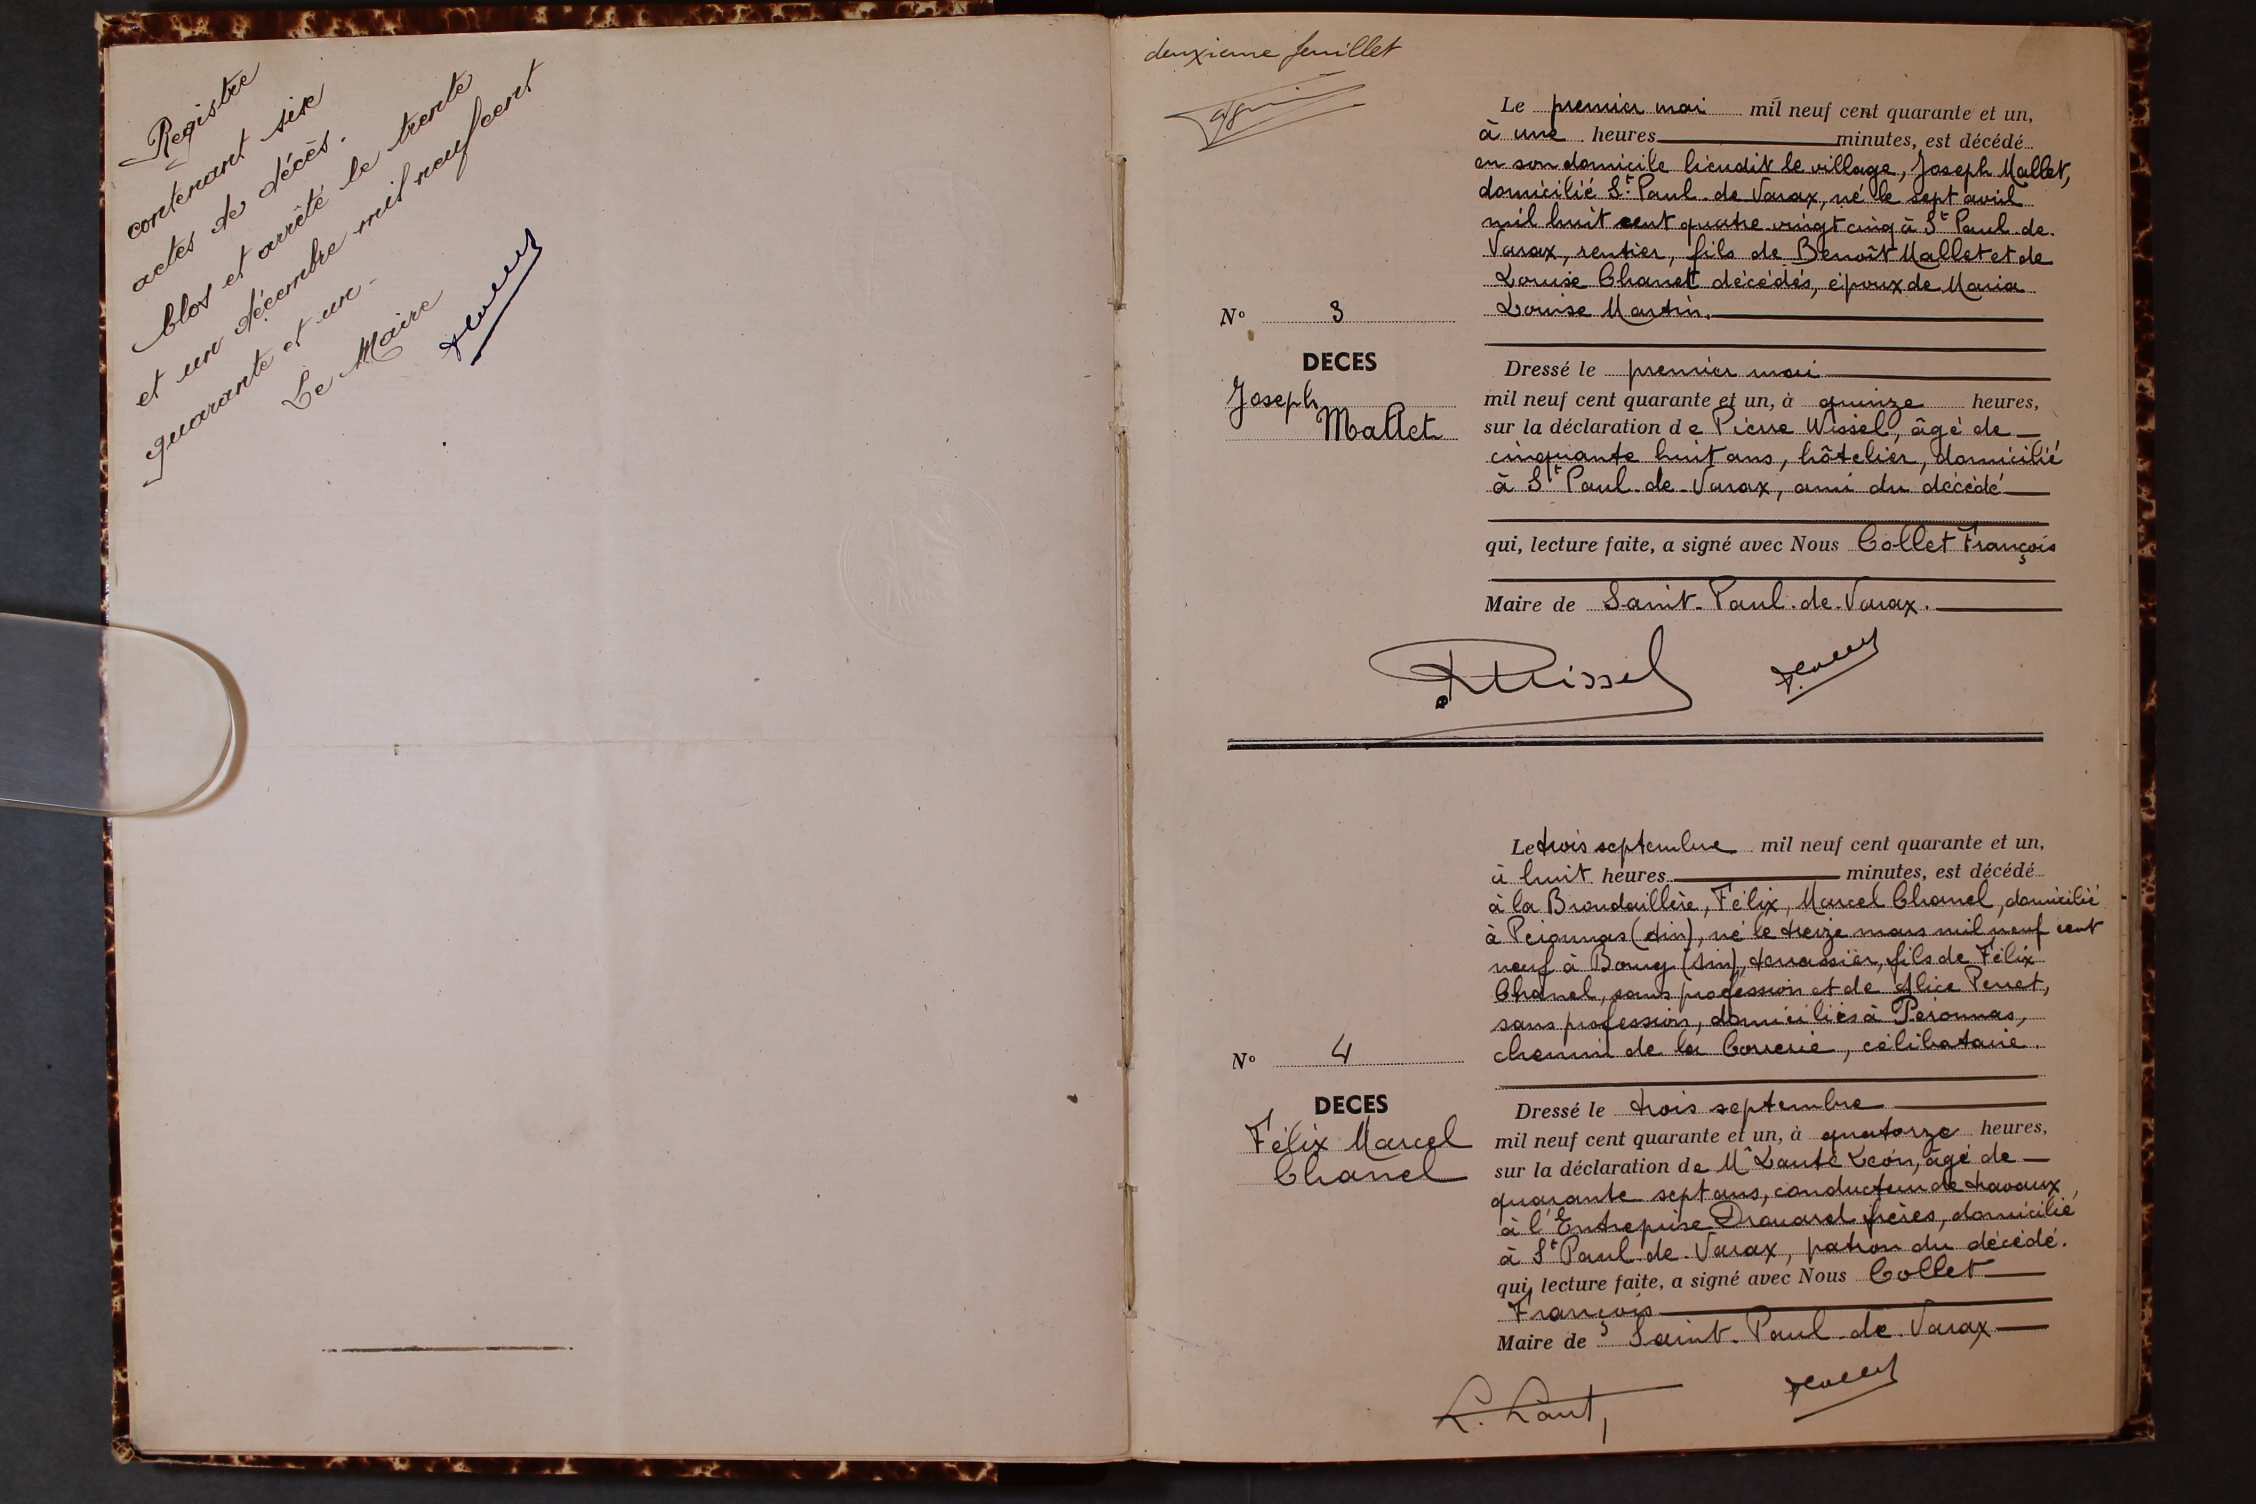 Registre
contenant six
actes de décès.
Clos et arrêté le trente
et un décembre mil neuf cent
quarante et un -
Le Maire
deuxième feuillet
Le premier mai mil neuf cent quarante et un,
à une heures minutes, est décédé
en son domicile lieudit le village, Joseph Mallet,
domicilié St. Paul-de-Varax, né le sept avril
mil huit cent quatre-vingt cinq à St Paul-de-
Varax, rentier, fils de Benoît Mallet et de
Louise Chanel décédés, époux de Maria
Louise Martin.
N° 3
DECES
Joseph
Mallet
Dressé le premier mai
mil neuf cent quarante et un, à quinze heures,
sur la déclaration de Pierre Wissel, âgé de
cinquante huit ans, hôtelier, domicilié
à St Paul-de-Varax, ami du décédé
qui, lecture faite, a signé avec Nous Collet François
Maire de Saint-Paul-de-Varax.
Wissel
Le trois septembre mil neuf cent quarante et un,
à huit heures minutes, est décédé
à la Broudaillère, Félix, Marcel Chanel, domicilié
à Péronnas (Ain), né le treize mars mil neuf cent
neuf à Bourg (Ain), terrassier, fils de Félix
Chanel, sans profession et de Alice Perret,
sans profession, domiciliés à Péronnas,
chemin de la Correrie, célibataire.
N° 4
DECES
Félix Marcel
Chanel
Dressé le trois septembre
mil neuf cent quarante et un, à quatorze heures,
sur la déclaration de Mr Lauté Léon, âgé de
quarante sept ans, conducteur de travaux,
à l'Entreprise Drouard frères, domicilié
à St Paul-de-Varax, patron du décédé.
qui, lecture faite, a signé avec Nous Collet
François
Maire de Saint-Paul-de-Varax
L. Lauté